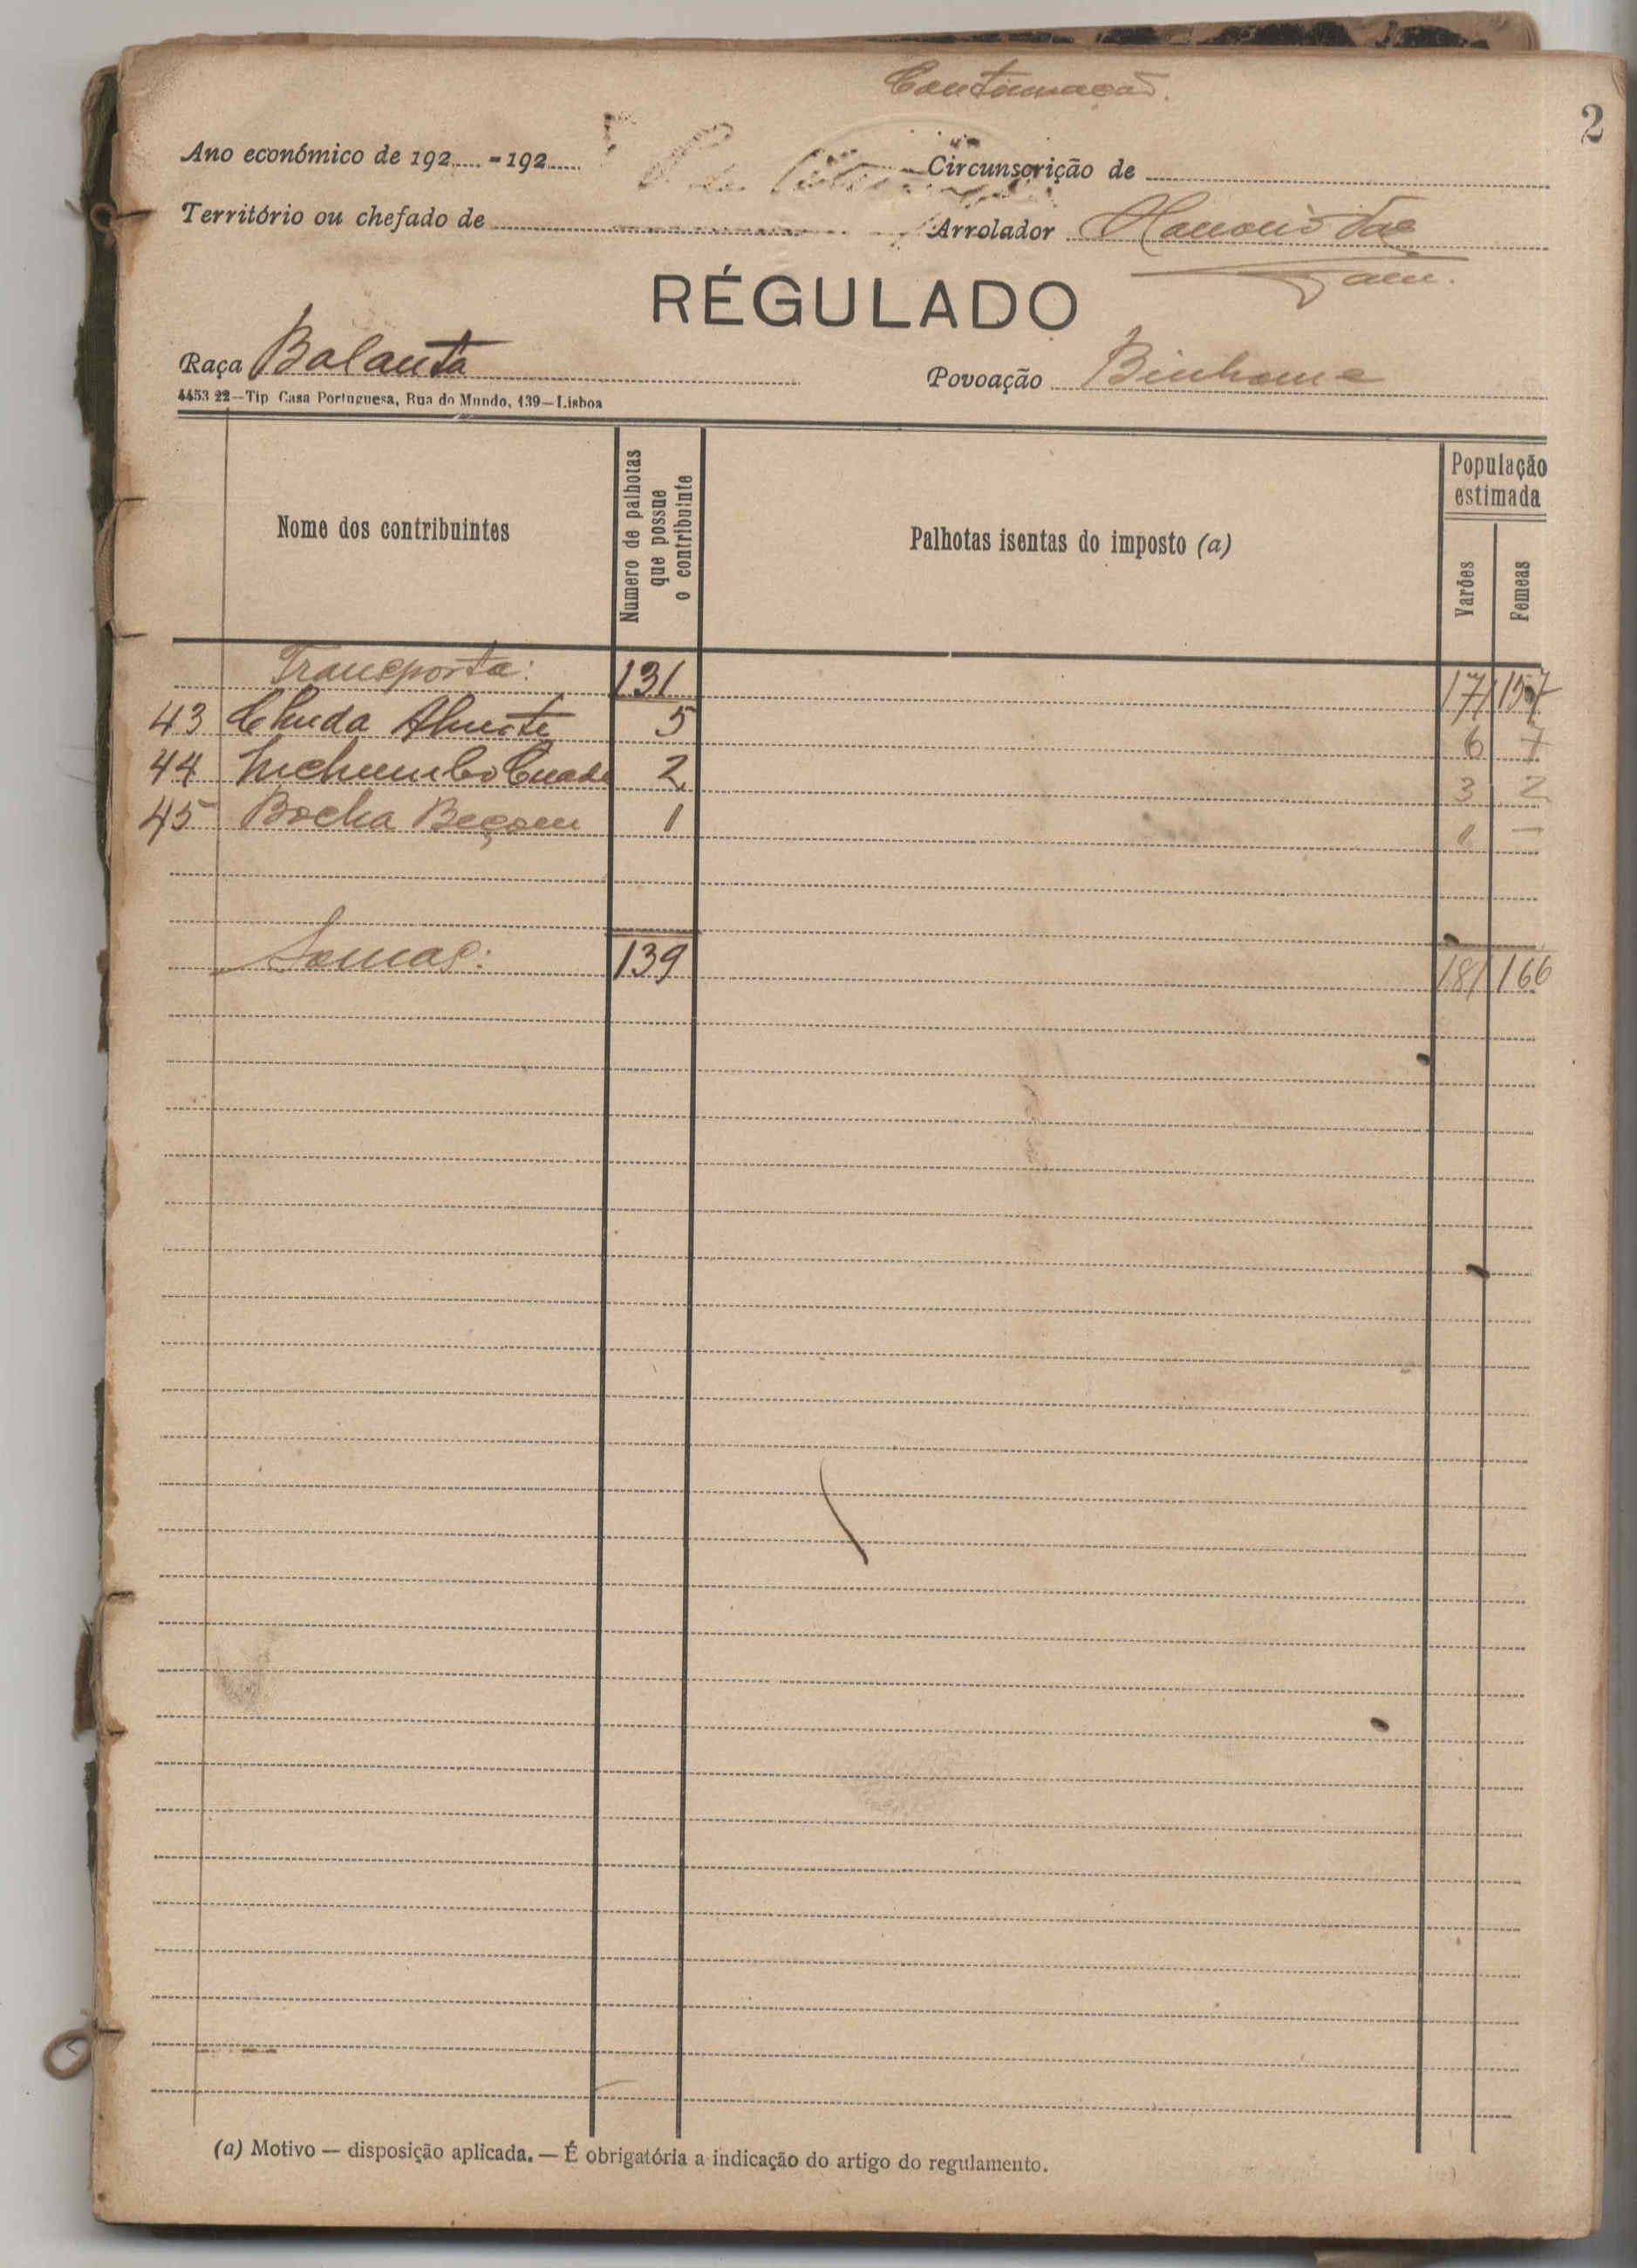 Continuação.
2
Ano económico de 192..... - 192..... Circunscrição de
Território ou chefado de Arrolador
RÉGULADO
Raça Balanta Povoação Binhome
4453 22—Tip Casa Portuguesa, Rua do Mundo, 139—Lisboa
Nome dos contribuintes
Numero de palhotas que possue o contribuinte
Palhotas isentas do imposto (a)
População estimada
Varões
Femeas
Transporte: 131 171 157
43 Chuda 5 6 7
44 2 3 2
45 Bocha 1 1 —
Somas: 139 181 166
(a) Motivo — disposição aplicada. — É obrigatória a indicação do artigo do regulamento.